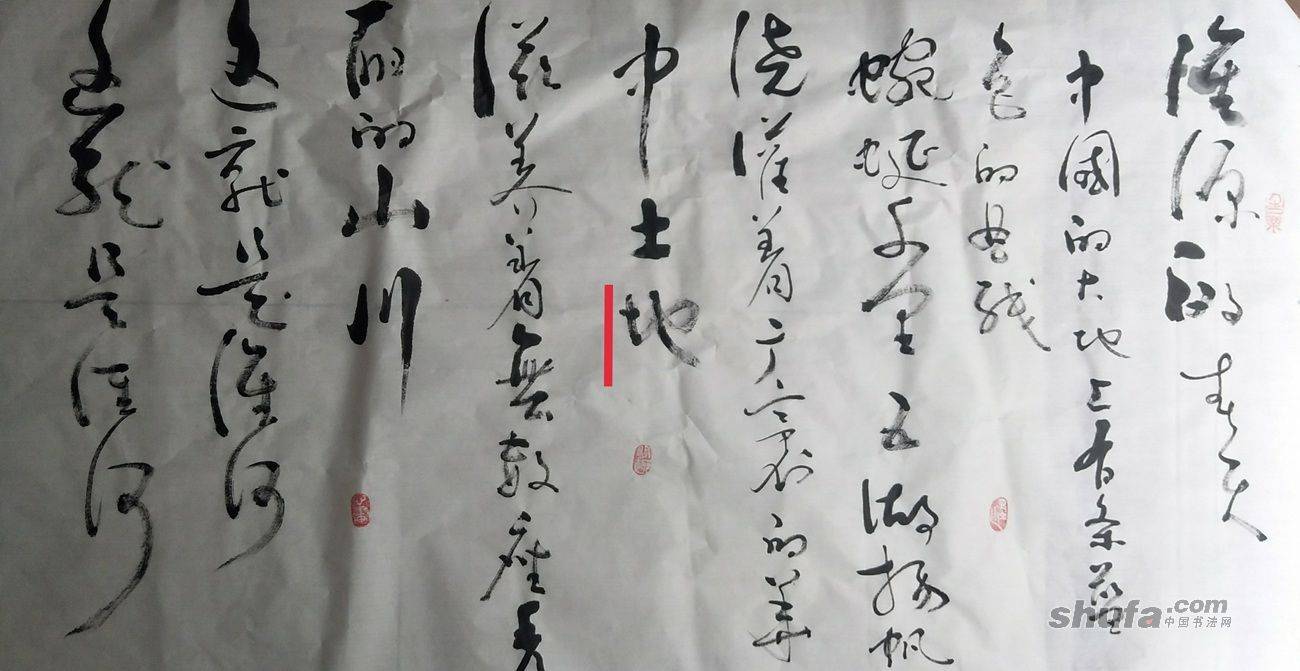 淮源的春天
中國的大地上有条蓝
色的曲线
蜿蜒千里五湖扬帆
浇灌着广袤的华
中土地
滋养着無数座秀
丽的山川
这就是淮河
这就是淮河
shufa.com
中国书法网